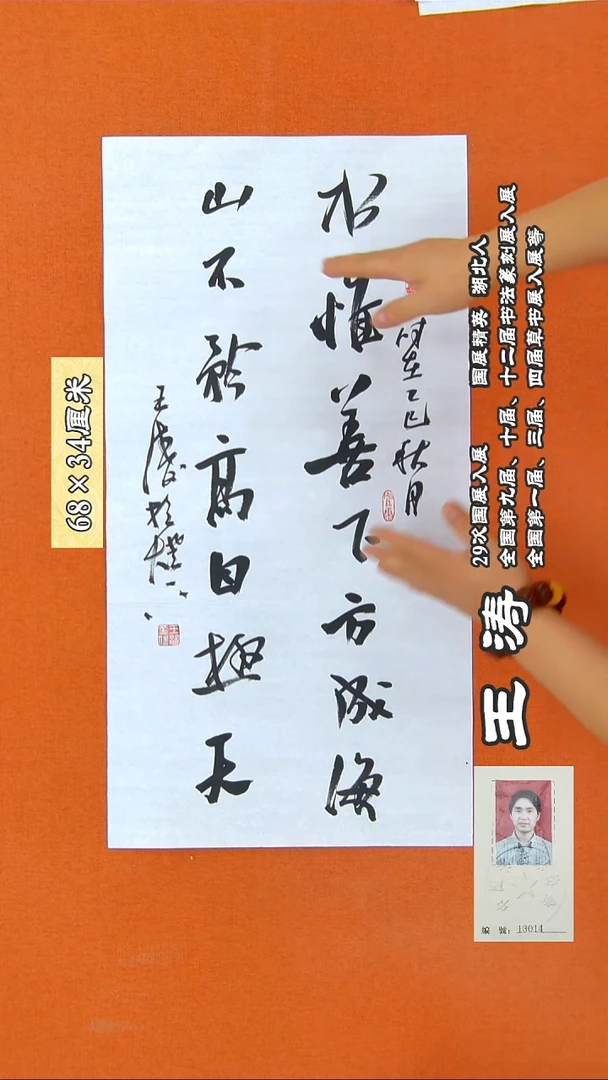 水惟善下方成海
时在乙巳秋月
山不矜高自极天
王涛
68×34厘米
29次国展入展 国展精英 湖北人
全国第九届、十届、十二届书法篆刻展入展
全国第一届、三届、四届草书展入展等
王涛
編 號：13014